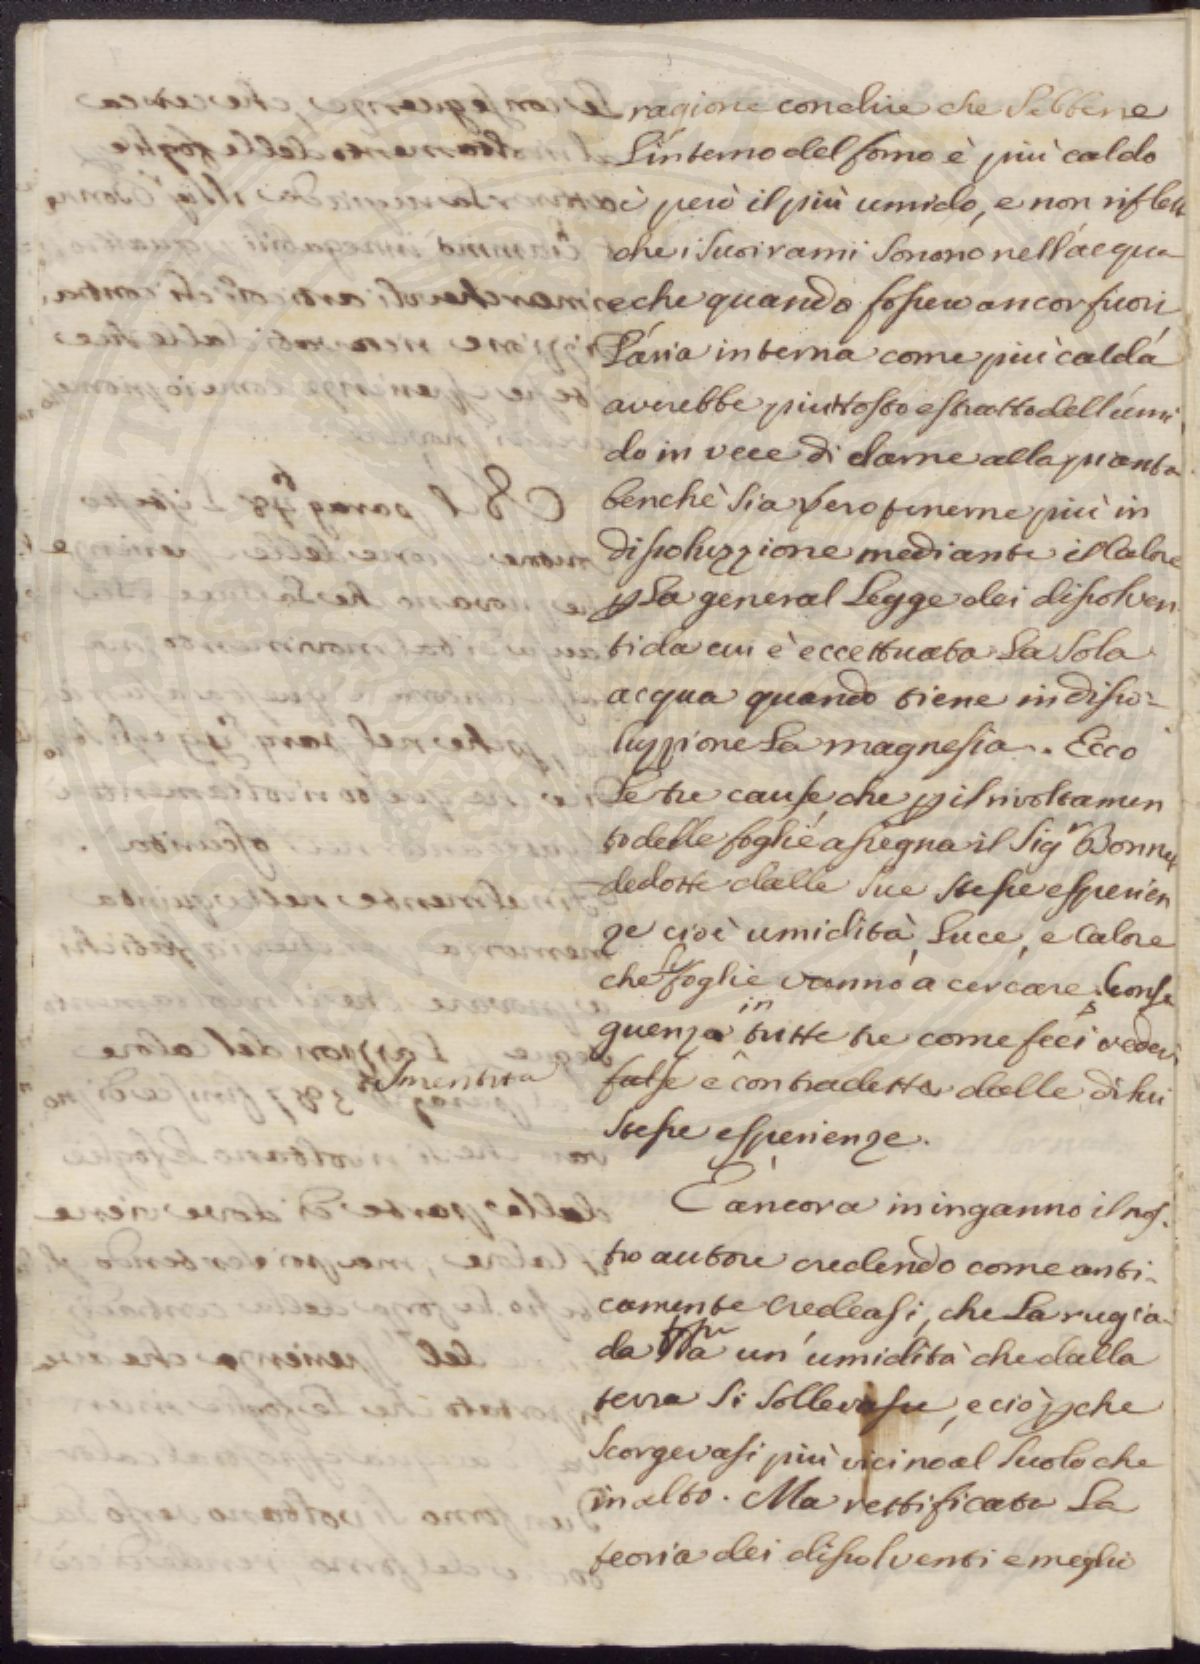 ragione conclure che sebbene
L'interno del forno è più caldo
è però il più umido, e non riflette
che i suoi rami sono nell'acqua
e che quando fossero ancor fuori
L'aria interna come più calda
averebbe piuttosto estratto dell'umi
do in vece di darne alla pianta
benchè sia vero tenerne più in
dissoluzzione mediante il Calore
p La general Legge dei dissolven
ti da cui è eccettuata La sola
acqua quando tiene in disso=
luzzione La magnesia. Ecco
Le tre cause che p il rivoltamen
to delle foglie assegna il Sigr Bonnet
dedotte dalle sue stesse esperien
ze cioè umidità, Luce, e Calore
che Le foglie vanno a cercare. Conse
guenza in tutte tre come feci vedere
false e contradette dalle di lui
smentita
stesse esperienze.
È ancora in inganno il nos.
tro autore credendo come anti=
camente credeasi, che La rugia=
da un' umidità che dalla
terra si sollevasse, e ciò pche
scorgevasi più vicino al suolo che
in alto. Ma rettificata La
teoria dei dissolventi e meglio